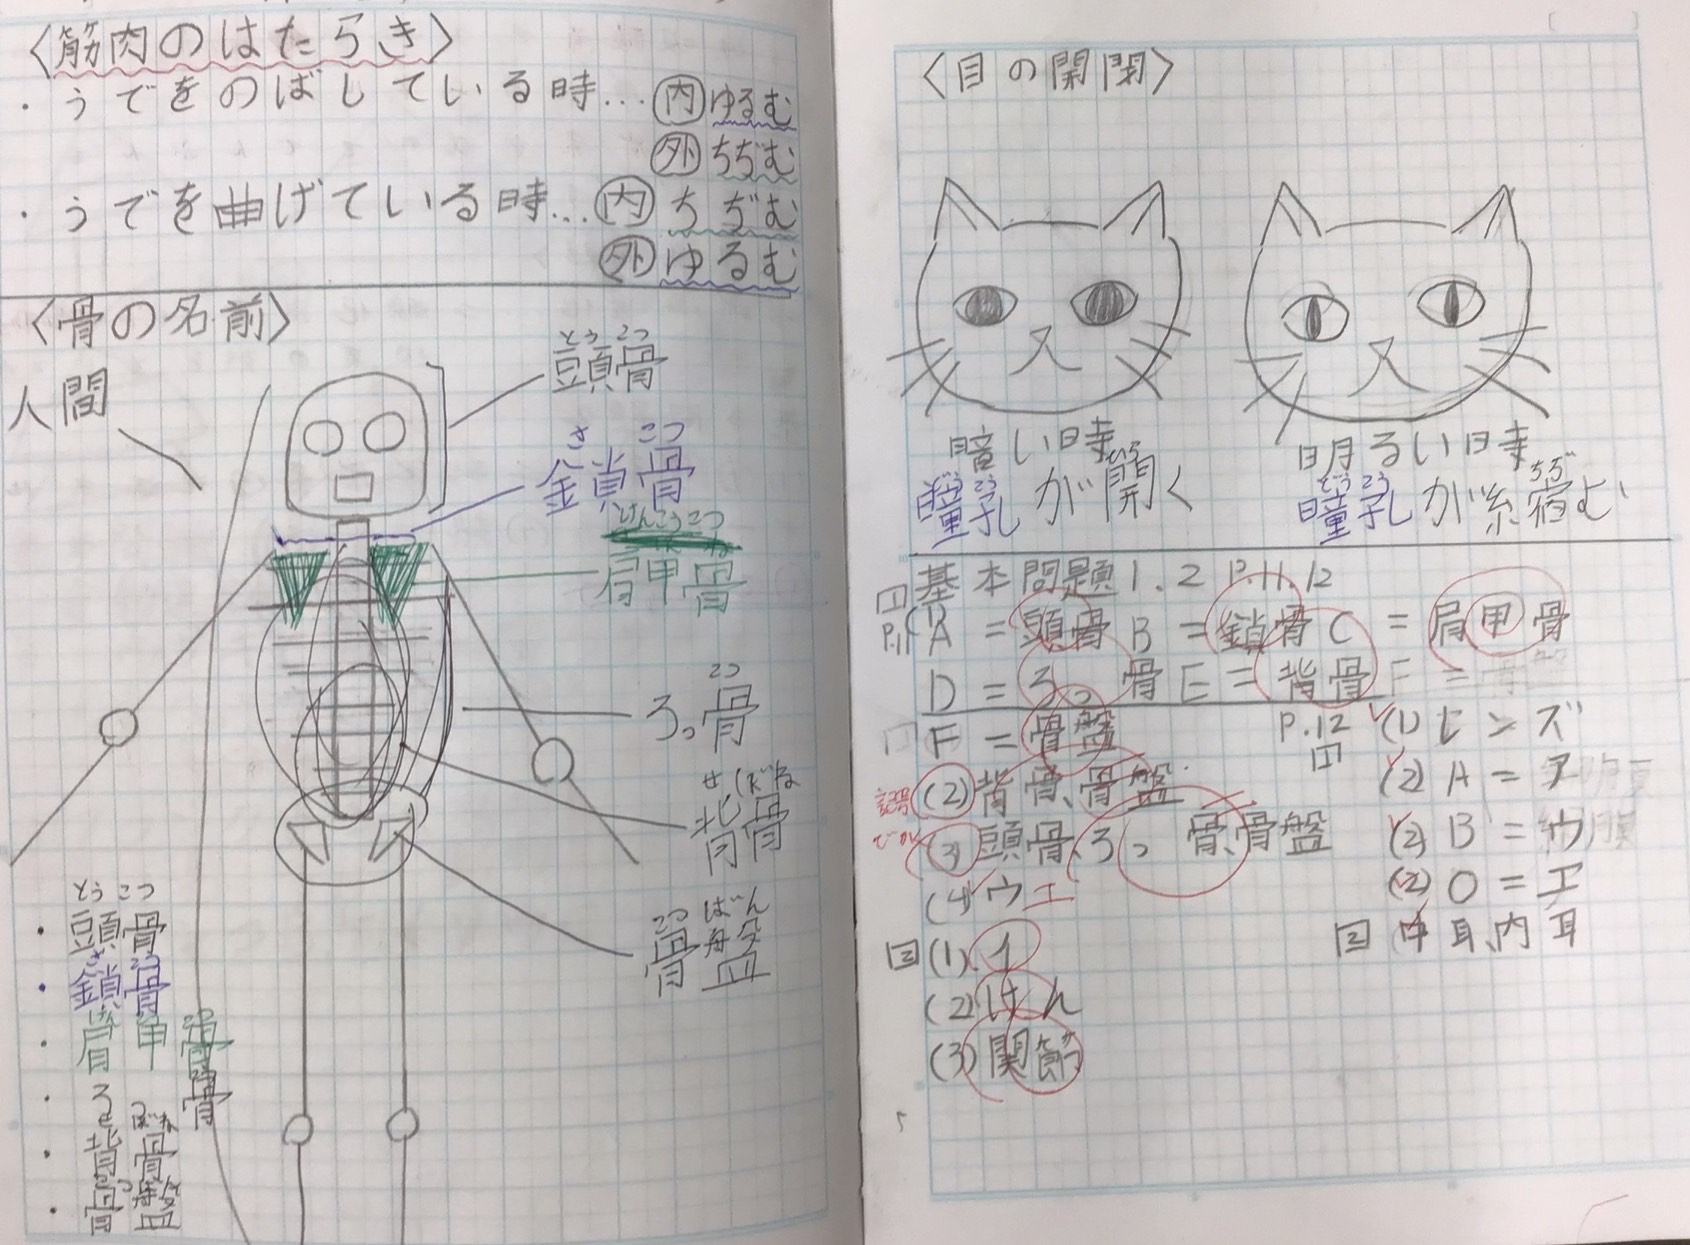 〈筋肉のはたらき〉
・うでをのばしている時…内ゆるむ
外ちぢむ
・うでを曲げている時…内ちぢむ
外ゆるむ
〈骨の名前〉
人間
とうこつ
頭骨
さこつ
鎖骨
けんこうこつ
肩甲骨
こつ
ろっ骨
せぼね
背骨
こつばん
骨盤
とうこつ
・頭骨
さこつ
・鎖骨
・肩甲骨
・ろっ骨
・背骨
・骨盤
〈目の開閉〉
暗い時
どうこう
瞳孔が開く
明るい時
どうこう ちぢ
瞳孔が縮む
基本問題1.2 P.11.12
1 P.11 (1) A=頭骨 B=鎖骨 C=肩甲骨
D=ろっ骨 E=背骨 F=
F=骨盤
(2)背骨、骨盤
(3)頭骨、ろっ骨、骨盤
(4)ウエ
2 (1).イ
(2)けん
(3)関節
P.12 1 (1)ヒンズ
(2) A=ア
(2) B=ウ
(2) O=エ
2 中耳、内耳